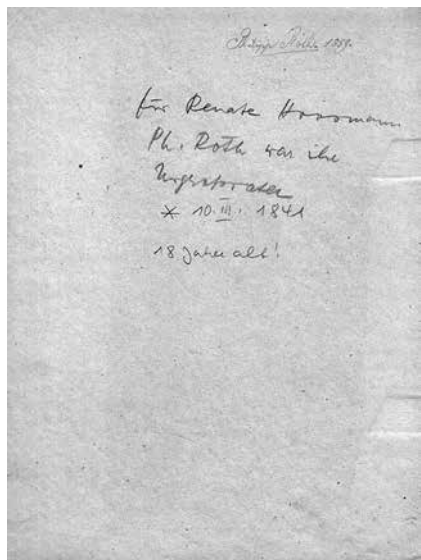 Philipp Roth 1859.
für Renate
Ph. Roth war ihr
Urgrossvater
* 10. III. 1841
18 Jahre alt!